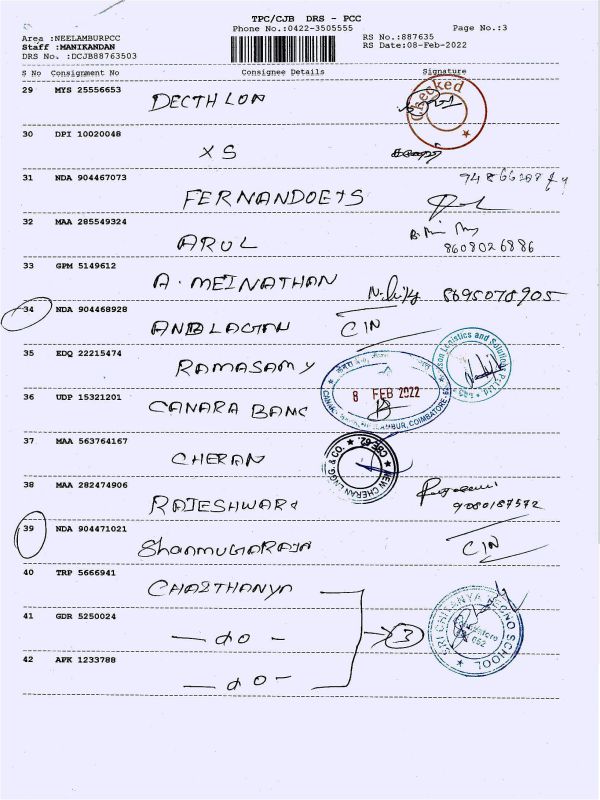 TPC/CJB DRS - PCC
Phone No.:0422-3505555
Page No.:3
Area :NEELAMBURPCC
Staff :MANIKANDAN
DRS No. :DCJB88763503
RS No.:887635
RS Date:08-Feb-2022
S No Consignment No Consignee Details Signature
29 MYS 25556653 DECTHLON
Checked
30 DPI 10020048 XS
31 NDA 904467073 FERNANDOETS
32 MAA 285549324 ARUL
8608026886
33 GPM 5149612 A. MEINATHAN 8695078905
34 NDA 904468928 CIN
35 EDQ 22215474 RAMASAMY
son Logistics and Solutions Pvt Ltd
36 UDP 15321201 CANARA BANC
8 FEB 2022
COIMBATORE
37 MAA 563764167 CHERAN
NEW CHERAN ENGG. & CO. CBE 62.
38 MAA 282474906 RAJESHWARI
9080187572
39 NDA 904471021 ShanmugaRaja CIN
40 TRP 5666941 CHAITHANYA
41 GDR 5250024 — do —
3
SRI CHAITANYA TECHNO SCHOOL
42 AFK 1233788 — do —